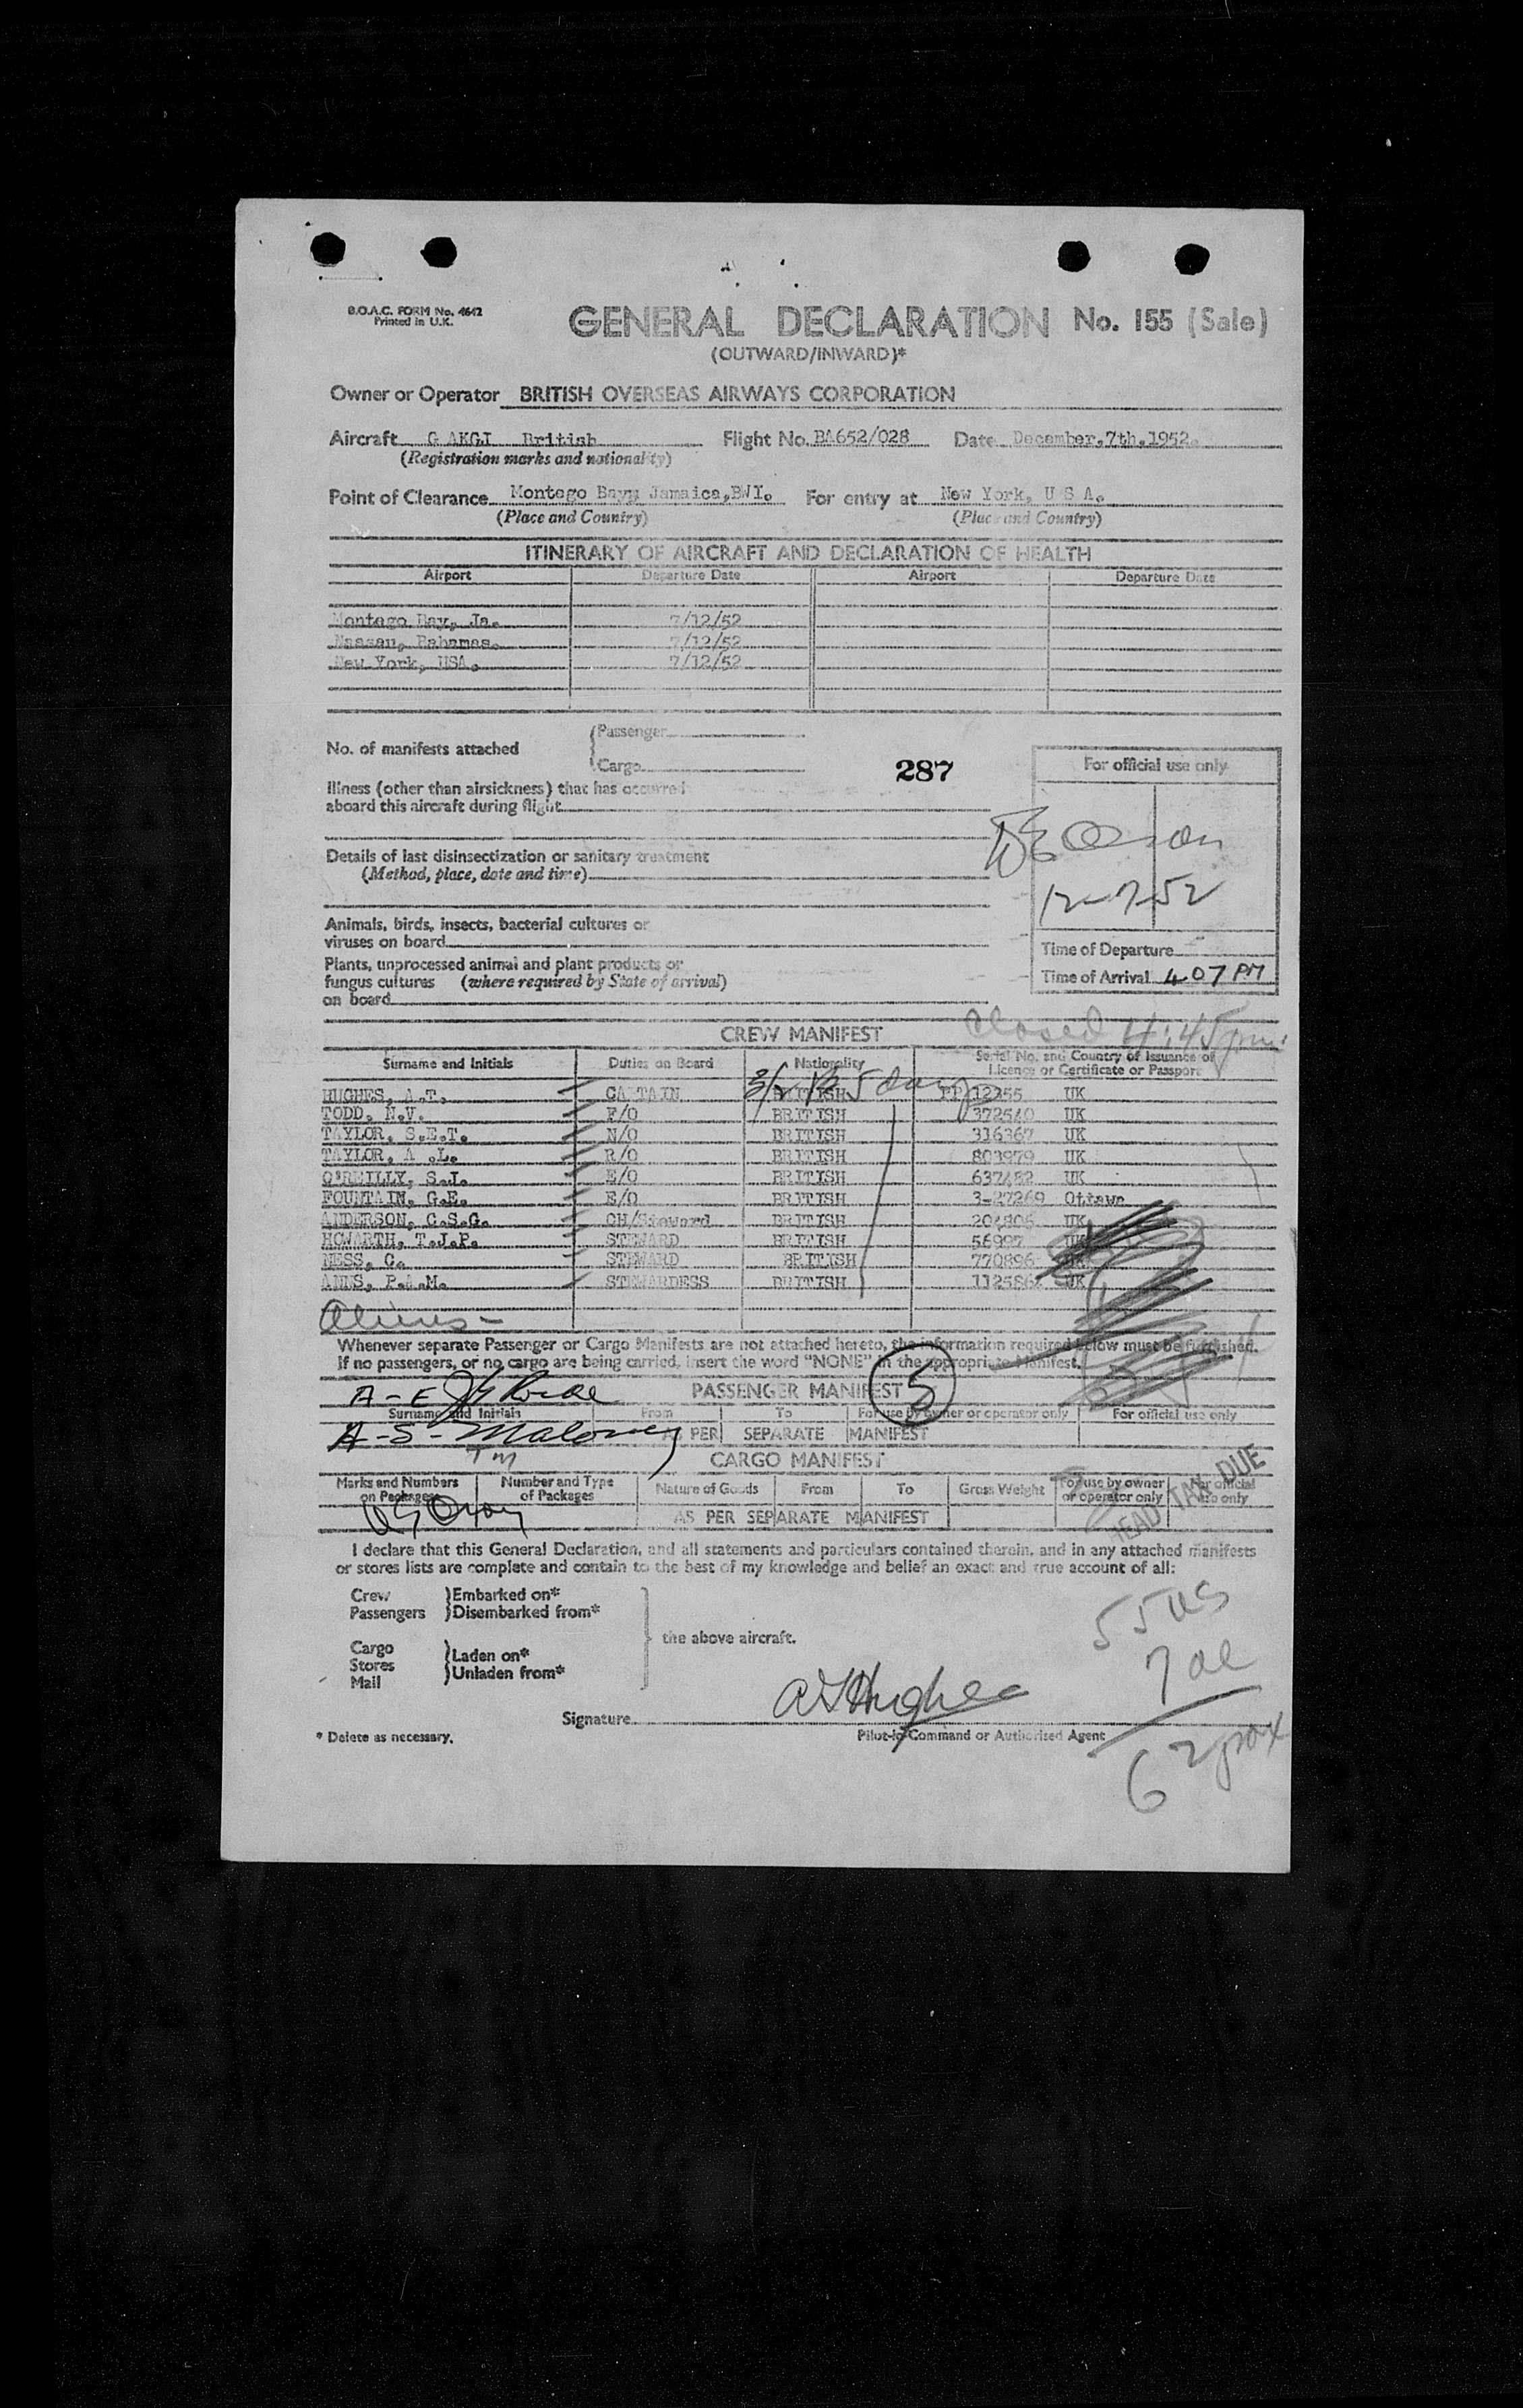 B.O.A.C. FORM No. 4642
Printed in U.K.
GENERAL DECLARATION No. 155 (Sale)
(OUTWARD/INWARD)*
Owner or Operator BRITISH OVERSEAS AIRWAYS CORPORATION
Aircraft G AKGJ British Flight No. BA652/028 Date December.7th.1952.
(Registration marks and nationality)
Point of Clearance Montego Bay, Jamaica,BWI. For entry at New York, U S A.
(Place and Country) (Place and Country)
ITINERARY OF AIRCRAFT AND DECLARATION OF HEALTH
Airport Departure Date Airport Departure Date
Montego Bay, Ja. 7/12/52
Nassau, Bahamas. 7/12/52
New York, USA. 7/12/52
No. of manifests attached
Passenger
Cargo
287
For official use only
Illness (other than airsickness) that has occurred
aboard this aircraft during flight
Details of last disinsectization or sanitary treatment
(Method, place, date and time)
12-7-52
Animals, birds, insects, bacterial cultures or
viruses on board
Time of Departure
Plants, unprocessed animal and plant products or
fungus cultures (where required by State of arrival)
on board
Time of Arrival 4.07 PM
Closed 4:45 pm
CREW MANIFEST
Surname and Initials Duties on Board Nationality Serial No. and Country of Issuance of
Licence or Certificate or Passport
HUGHES, A.T. CAPTAIN BRITISH PP 12355 UK
TODD, N.V. F/O BRITISH 372540 UK
TAYLOR, S.E.T. N/O BRITISH 316367 UK
TAYLOR, A .L. R/O BRITISH 803979 UK
O'REILLY, S.J. E/O BRITISH 637482 UK
FOUNTAIN, G.E. E/O BRITISH 3-27269 Ottawa
ANDERSON, C.S.G. CH/Steward BRITISH 204806 UK
HOWARTH, T.J.P. STEWARD BRITISH 56997 UK
NESS, C. STEWARD BRITISH 770896 UK
ANNS, P.A.M. STEWARDESS BRITISH 112586 UK
Aliens -
Whenever separate Passenger or Cargo Manifests are not attached hereto, the information required below must be furnished.
If no passengers, or no cargo are being carried, insert the word "NONE" in the appropriate Manifest.
A-E
PASSENGER MANIFEST 5
Surname and Initials From To For use by owner or operator only For official use only
A-S- Maloney AS PER SEPARATE MANIFEST
CARGO MANIFEST
Marks and Numbers
on Packages
Number and Type
of Packages
Nature of Goods From To Gross Weight
For use by owner
or operator only
For official
use only
HEAD TAX DUE
AS PER SEPARATE MANIFEST
I declare that this General Declaration, and all statements and particulars contained therein, and in any attached manifests
or stores lists are complete and contain to the best of my knowledge and belief an exact and true account of all:
Crew
Passengers
Embarked on*
Disembarked from*
Cargo
Stores
Mail
Laden on*
Unladen from*
the above aircraft.
55 US
7 al
62 pax
Signature A T Hughes
Pilot-in-Command or Authorised Agent
* Delete as necessary.